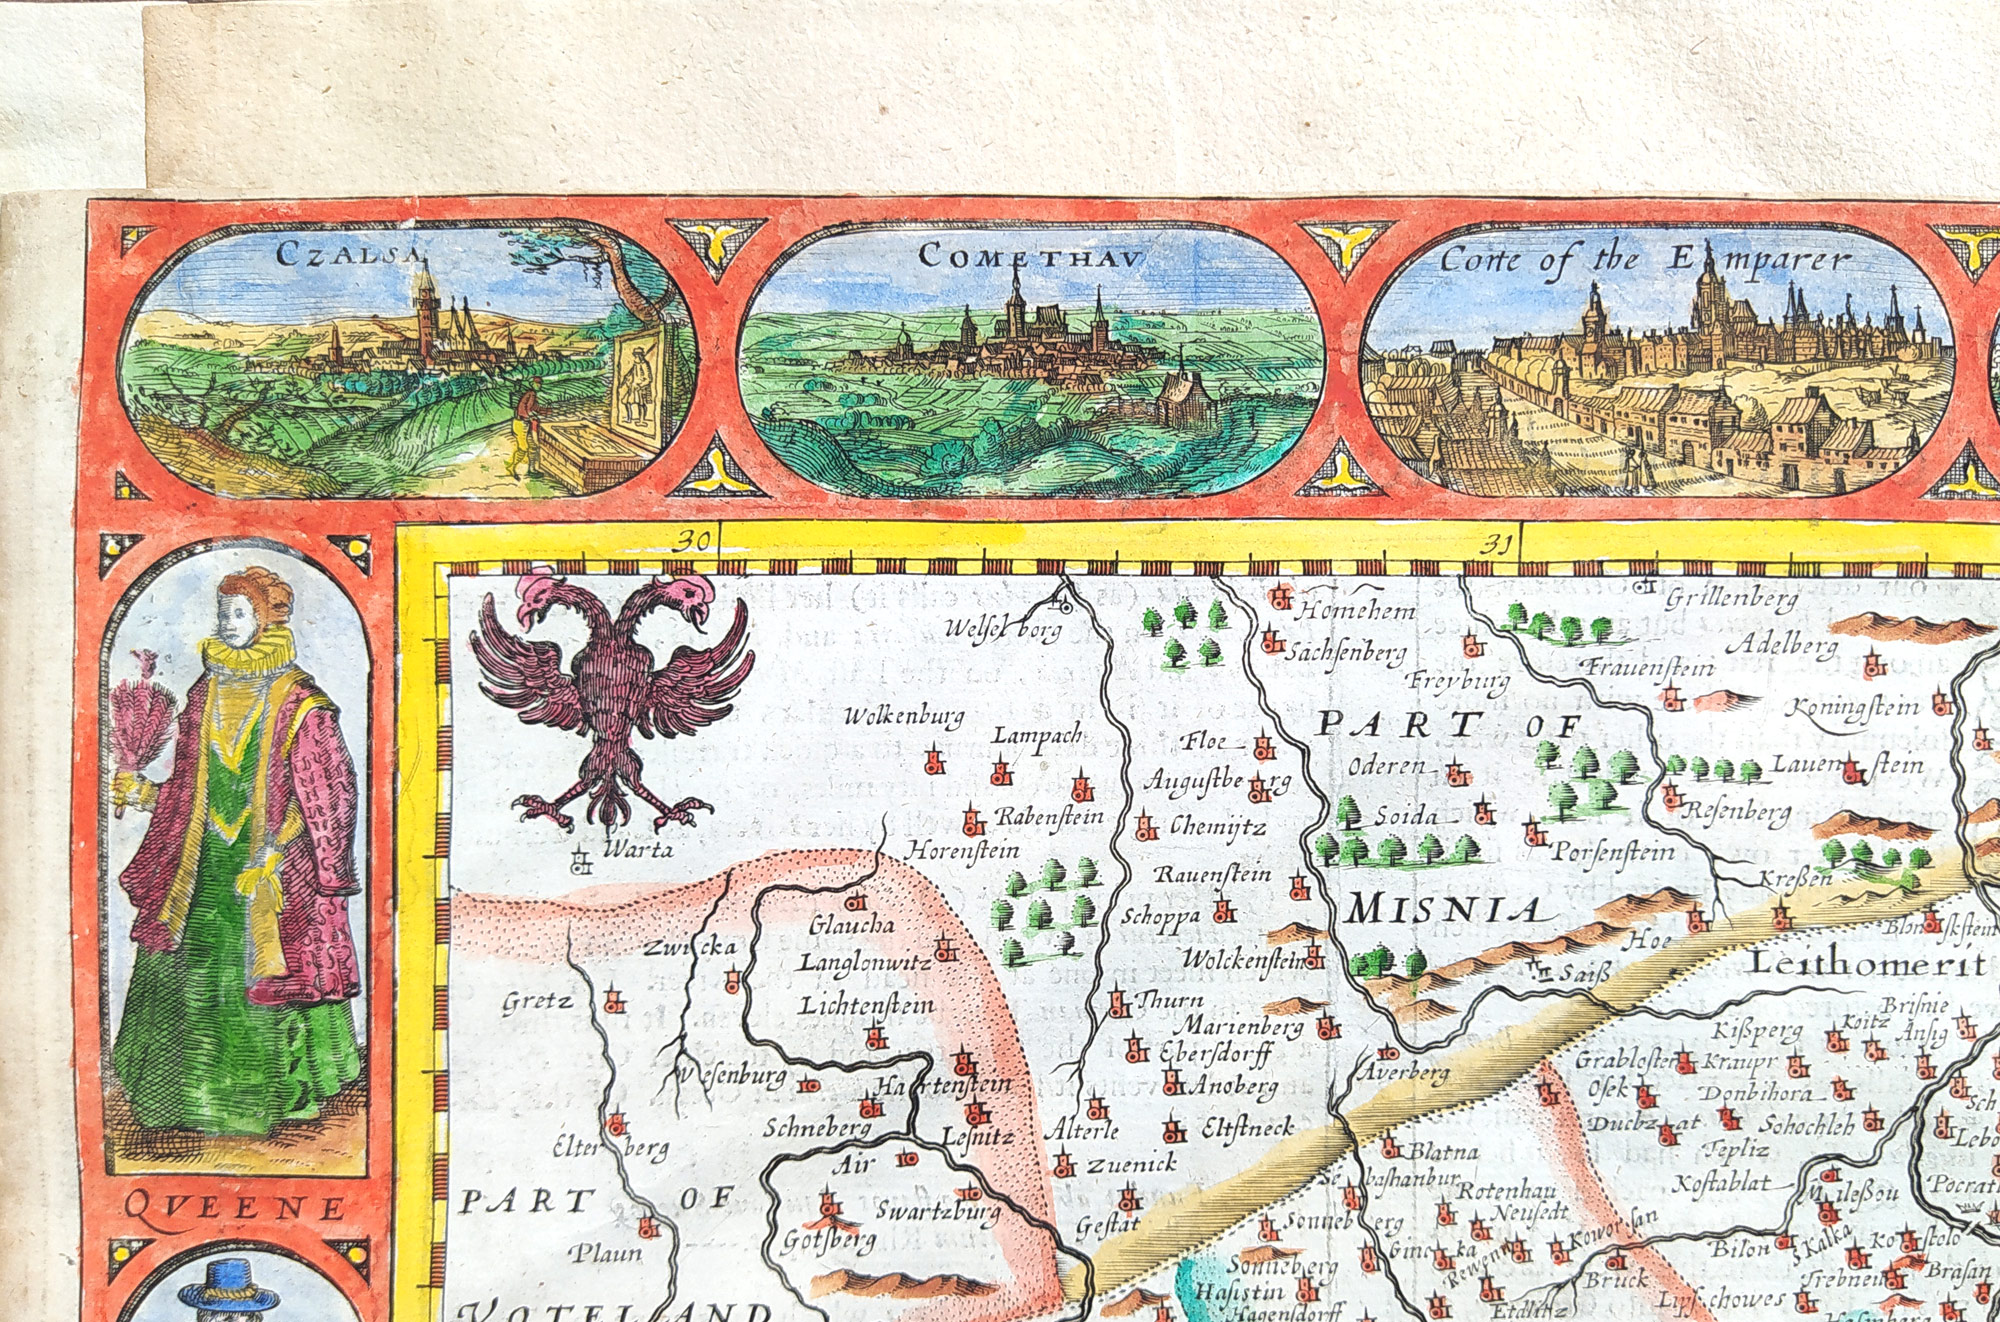 CZALSA
COMETHAV
Corte of the Emparer
30
31
QVEENE
Welselborg
Homehem
Sachsenberg
Freyburg
Grillenberg
Adelberg
Frauenstein
Koningstein
Wolkenburg
Lampach
Floe
PART OF
Oderen
Lauenstein
Augustbeerg
Soida
Resenberg
Rabenstein
Chemijtz
Warta
Horenstein
Porsenstein
Rauenstein
Kreßen
MISNIA
Schoppa
Glaucha
Zwicka
Hoe
Langlonwitz
Wolckenstein
Leithomerit
Saiß
Gretz
Lichtenstein
Thurn
Marienberg
Kißperg
Koitz
Brisnie
Ansig
Ebersdorff
Grabloster
Kraupr
Averberg
Wesenburg
Hartenstein
Anoberg
Osek
Donbihora
Schneberg
Lesnitz
Alterle
Eltstneck
Duchzat
Sohochleh
Elterberg
Air
Zuenick
Blatna
Tepliz
Sebastianbur
Rotenhau
Kostablat
Mileßou
PART OF
Swartzburg
Gestat
Sonneberg
Neusedt
Koworsan
Gotsberg
Plaun
Bilon
S Kalka
Kostolo
Sonneberg
Bruck
Trebneu
Brasan
Hasistin
Etdlitz
Lipschowes
VOTELAND
Hagensdorff